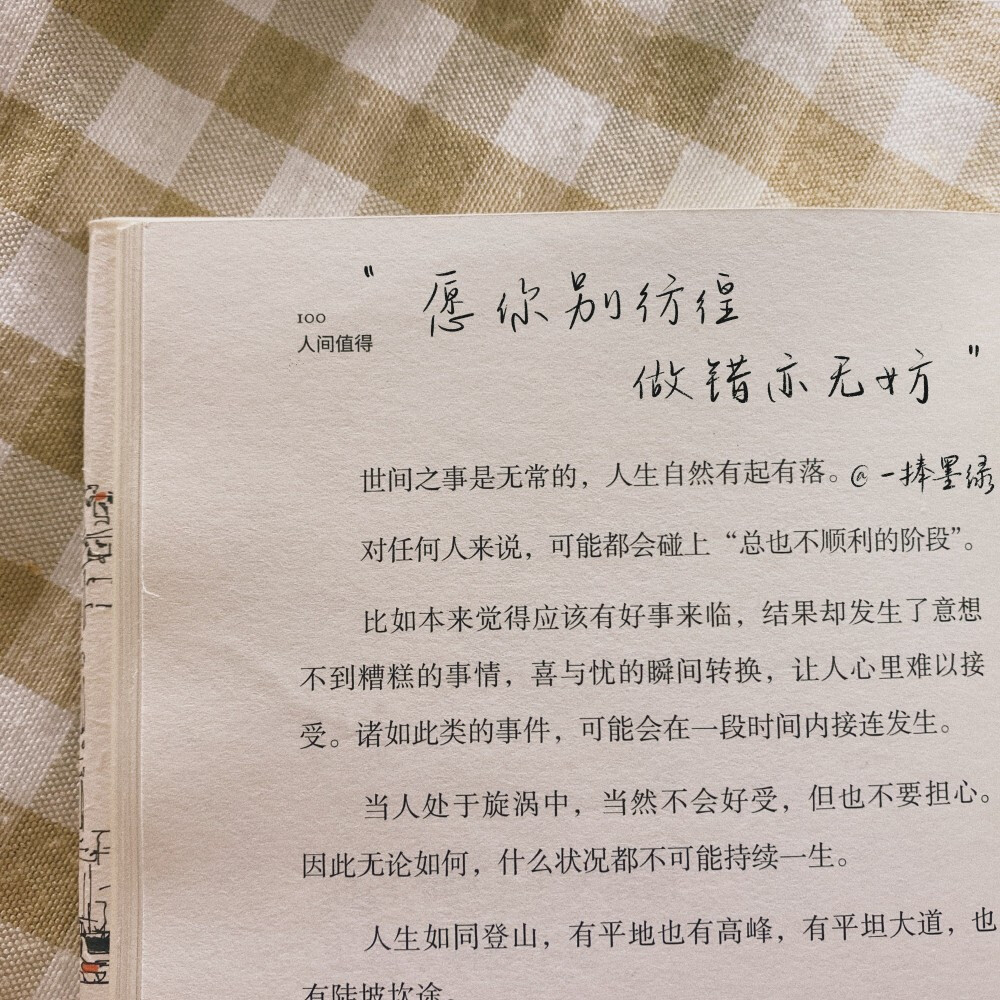 "愿你别彷徨
100
人间值得
做错亦无妨"
世间之事是无常的，人生自然有起有落。@一捧墨绿
对任何人来说，可能都会碰上“总也不顺利的阶段”。
比如本来觉得应该有好事来临，结果却发生了意想
不到糟糕的事情，喜与忧的瞬间转换，让人心里难以接
受。诸如此类的事件，可能会在一段时间内接连发生。
当人处于旋涡中，当然不会好受，但也不要担心。
因此无论如何，什么状况都不可能持续一生。
人生如同登山，有平地也有高峰，有平坦大道，也
有陡坡坎途。